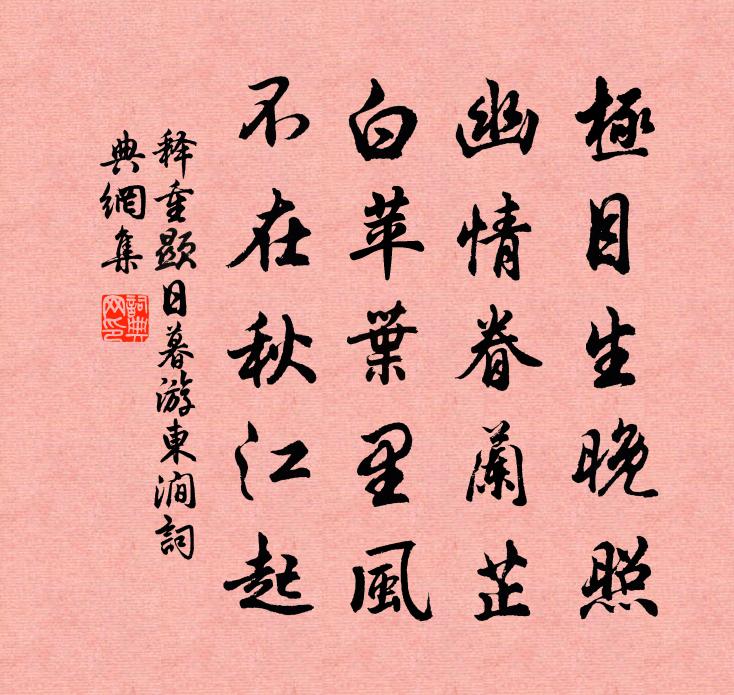 極目生晚照
幽情眷蘭芷
白苹葉里風
不在秋江起
释重顯日暮游東澗詞
典網集
詞典網印